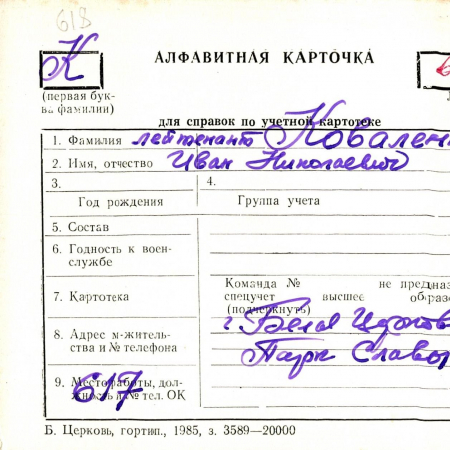 618
К
АЛФАВИТНАЯ КАРТОЧКА
(первая бук-
ва фамилии)
для справок по учетной картотеке
1. Фамилия лейтенант Коvален
2. Имя, отчество Иван Николаевич
3.
4.
Год рождения
Группа учета
5. Состав
6. Годность к воен-
службе
7. Картотека
Команда № не предназ
спецучет высшее образо
(подчеркнуть)
8. Адрес м-житель-
ства и № телефона
г. Белая Церков
Парк Славы
9. Место работы, дол-
жность и № тел. ОК
617
Б. Церковь, гортип., 1985, з. 3589—20000